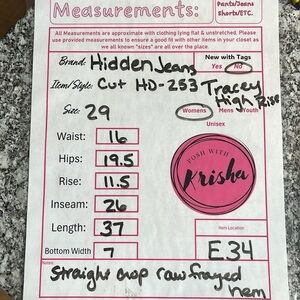 Measurements:
Pants/Jeans
Shorts/ETC.
All Measurements are Approximate with clothing lying flat & unstretched. Please
use provided measurements to ensure a good fit with other items in your closet as
we all known "sizes" are all over the place.
Brand: Hidden Jeans
New with Tags
Yes No
Item/Style: Cut HD-253 Tracey
High Rise
Size: 29
Womens Mens Youth
Unisex
Waist: 16
Hips: 19.5
Rise: 11.5
Inseam: 26
Length: 37
Bottom Width 7
POSH WITH
Krisha
Item Location
E.34
Notes:
Straight crop raw frayed
hem